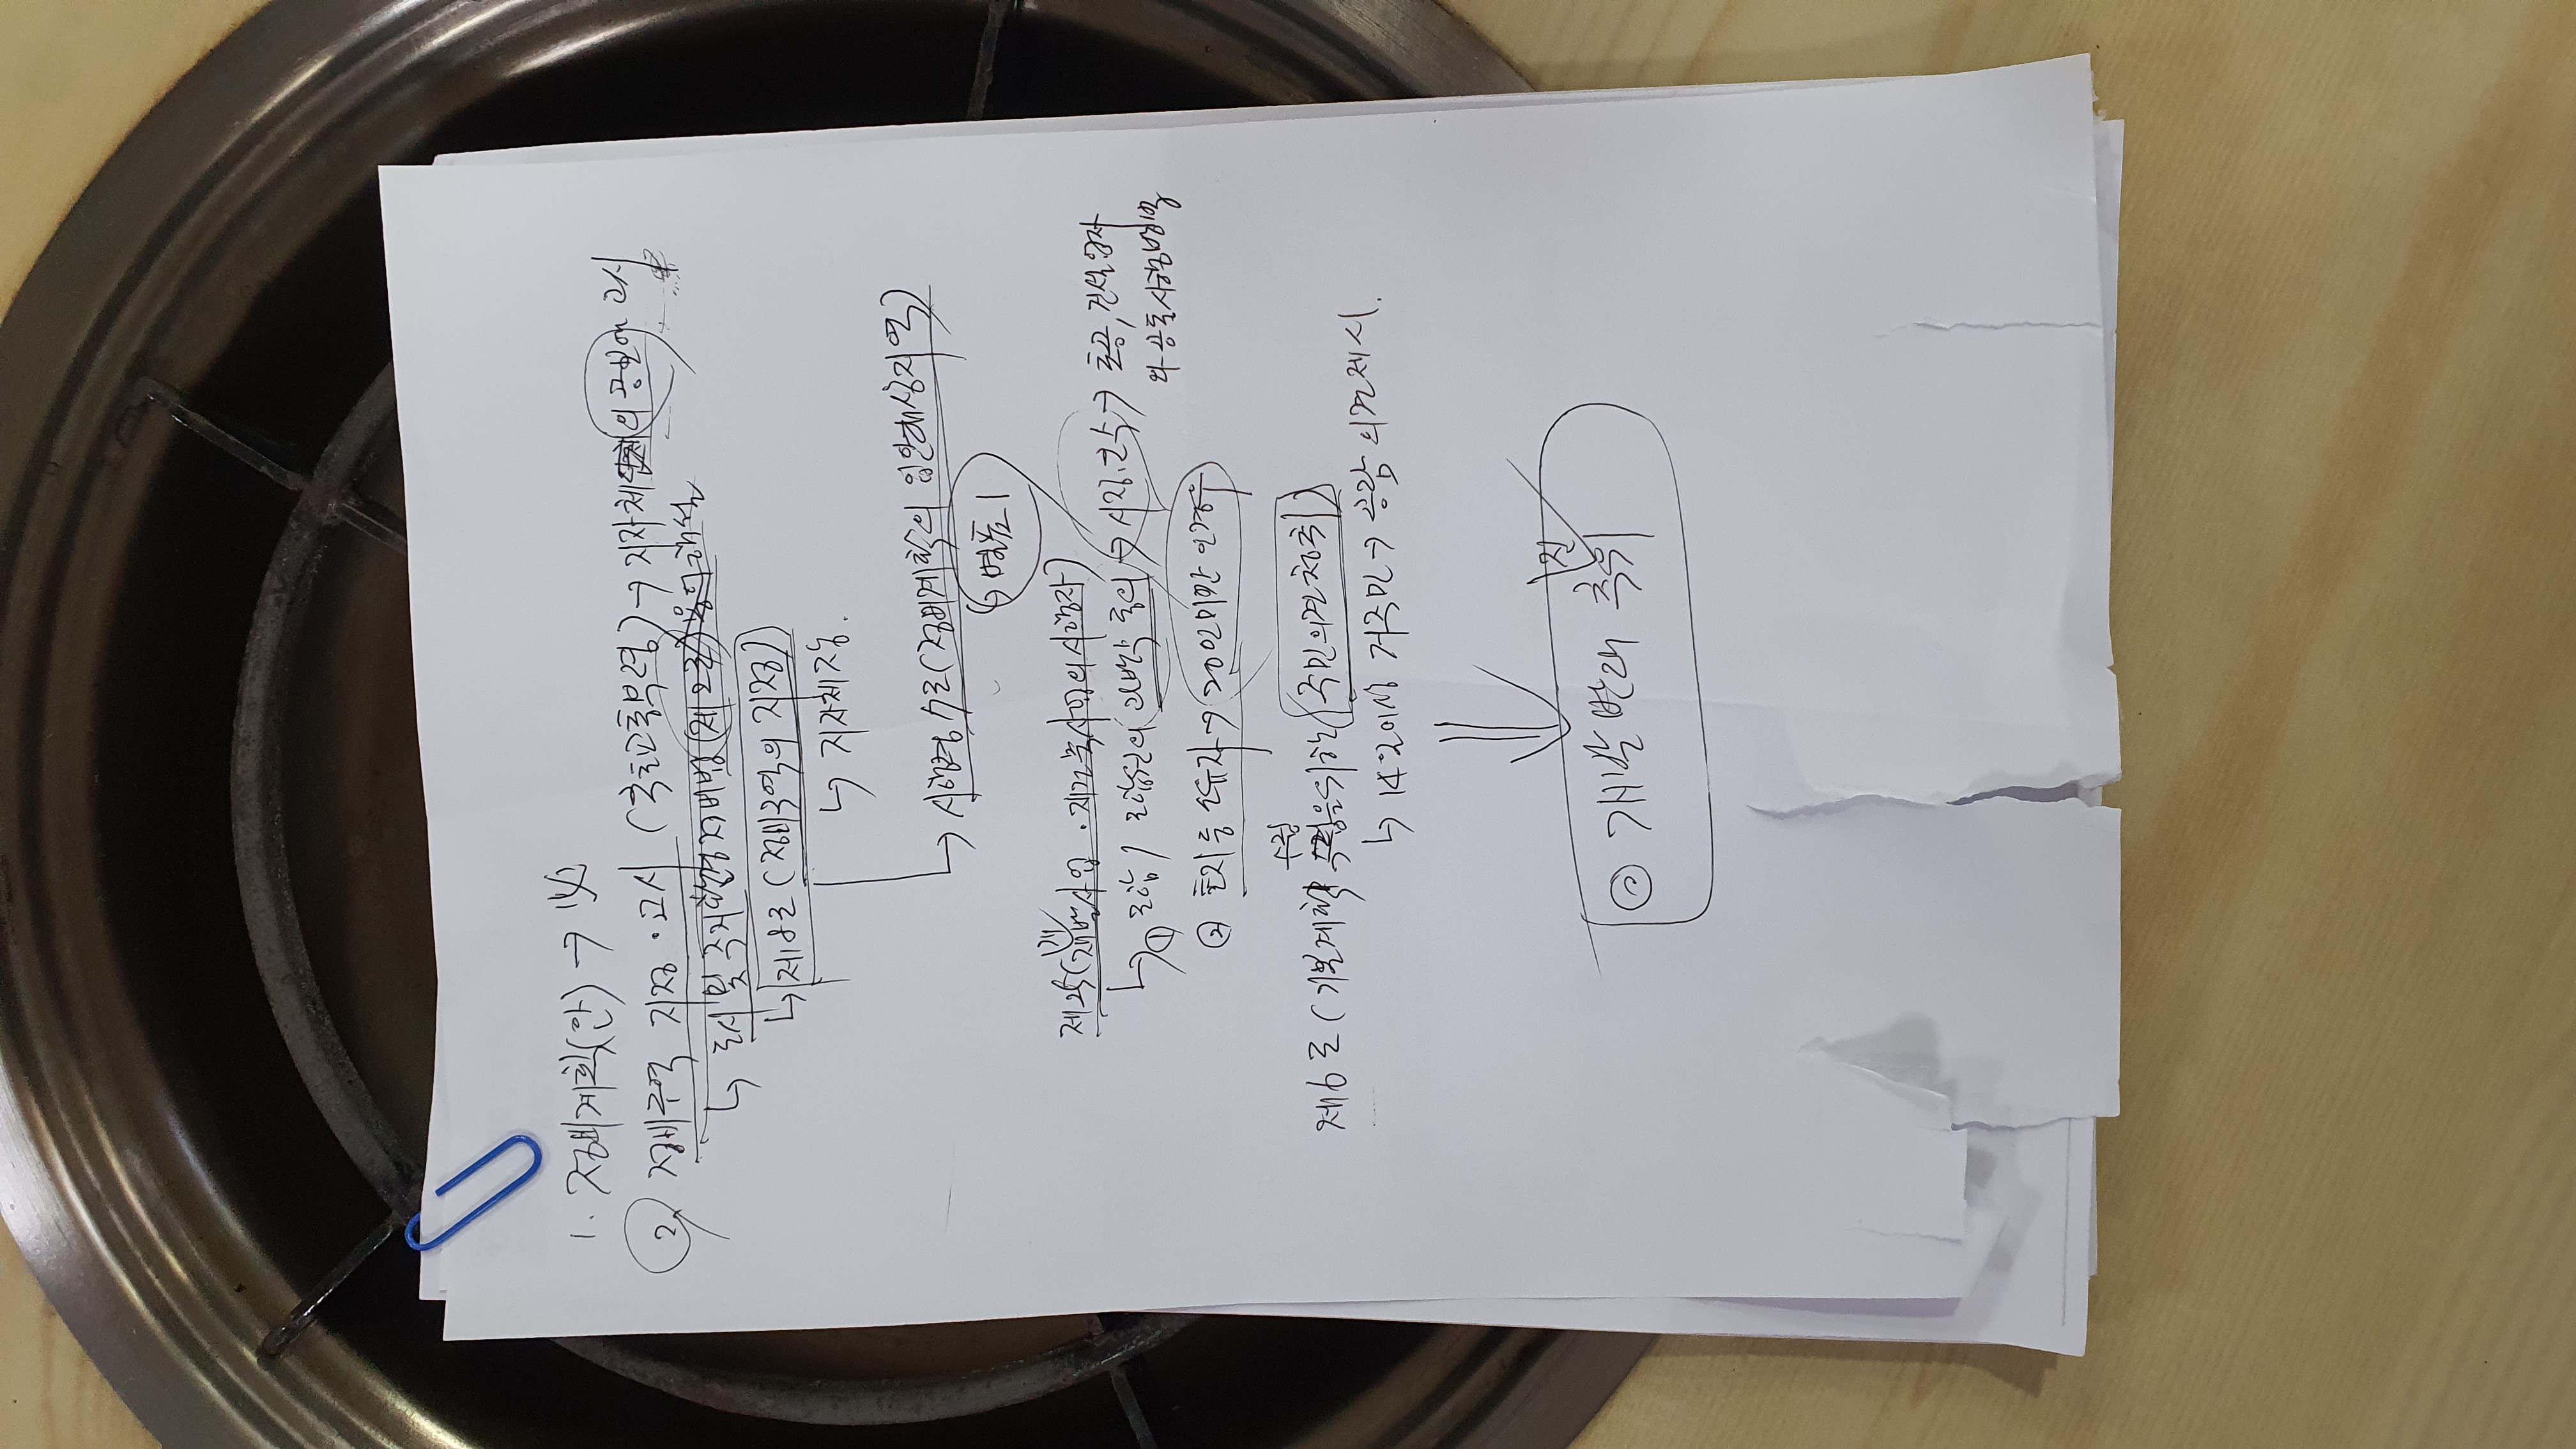 1. 정비계획(안) → 必
② 정비구역 지정·고시 (국토교통부령) → 지자체의 공보에 고시
↳ 도시 및 주거환경정비법 (제2조) 용어해설
↳ 제8조 (정비구역의 지정)
↳ 지자체장.
↳ 시행령 7조 (정비계획의 입안대상지역)
↳ 별표 1
제25 (재개발사업·재건축사업의 시행자)
↳ ① 조합 / 조합원의 과반수 동의 → 시장.군수 → 토공, 건설업자
와 공동시행방법
② 토지등 소유자 → 20인미만 인경우
제6조 (기본계획 수립을 위한 (주민의견청취)
↳ 14일이상 거주민 → 공람 의견제시.
⇓
◎ 개발반대 추진위